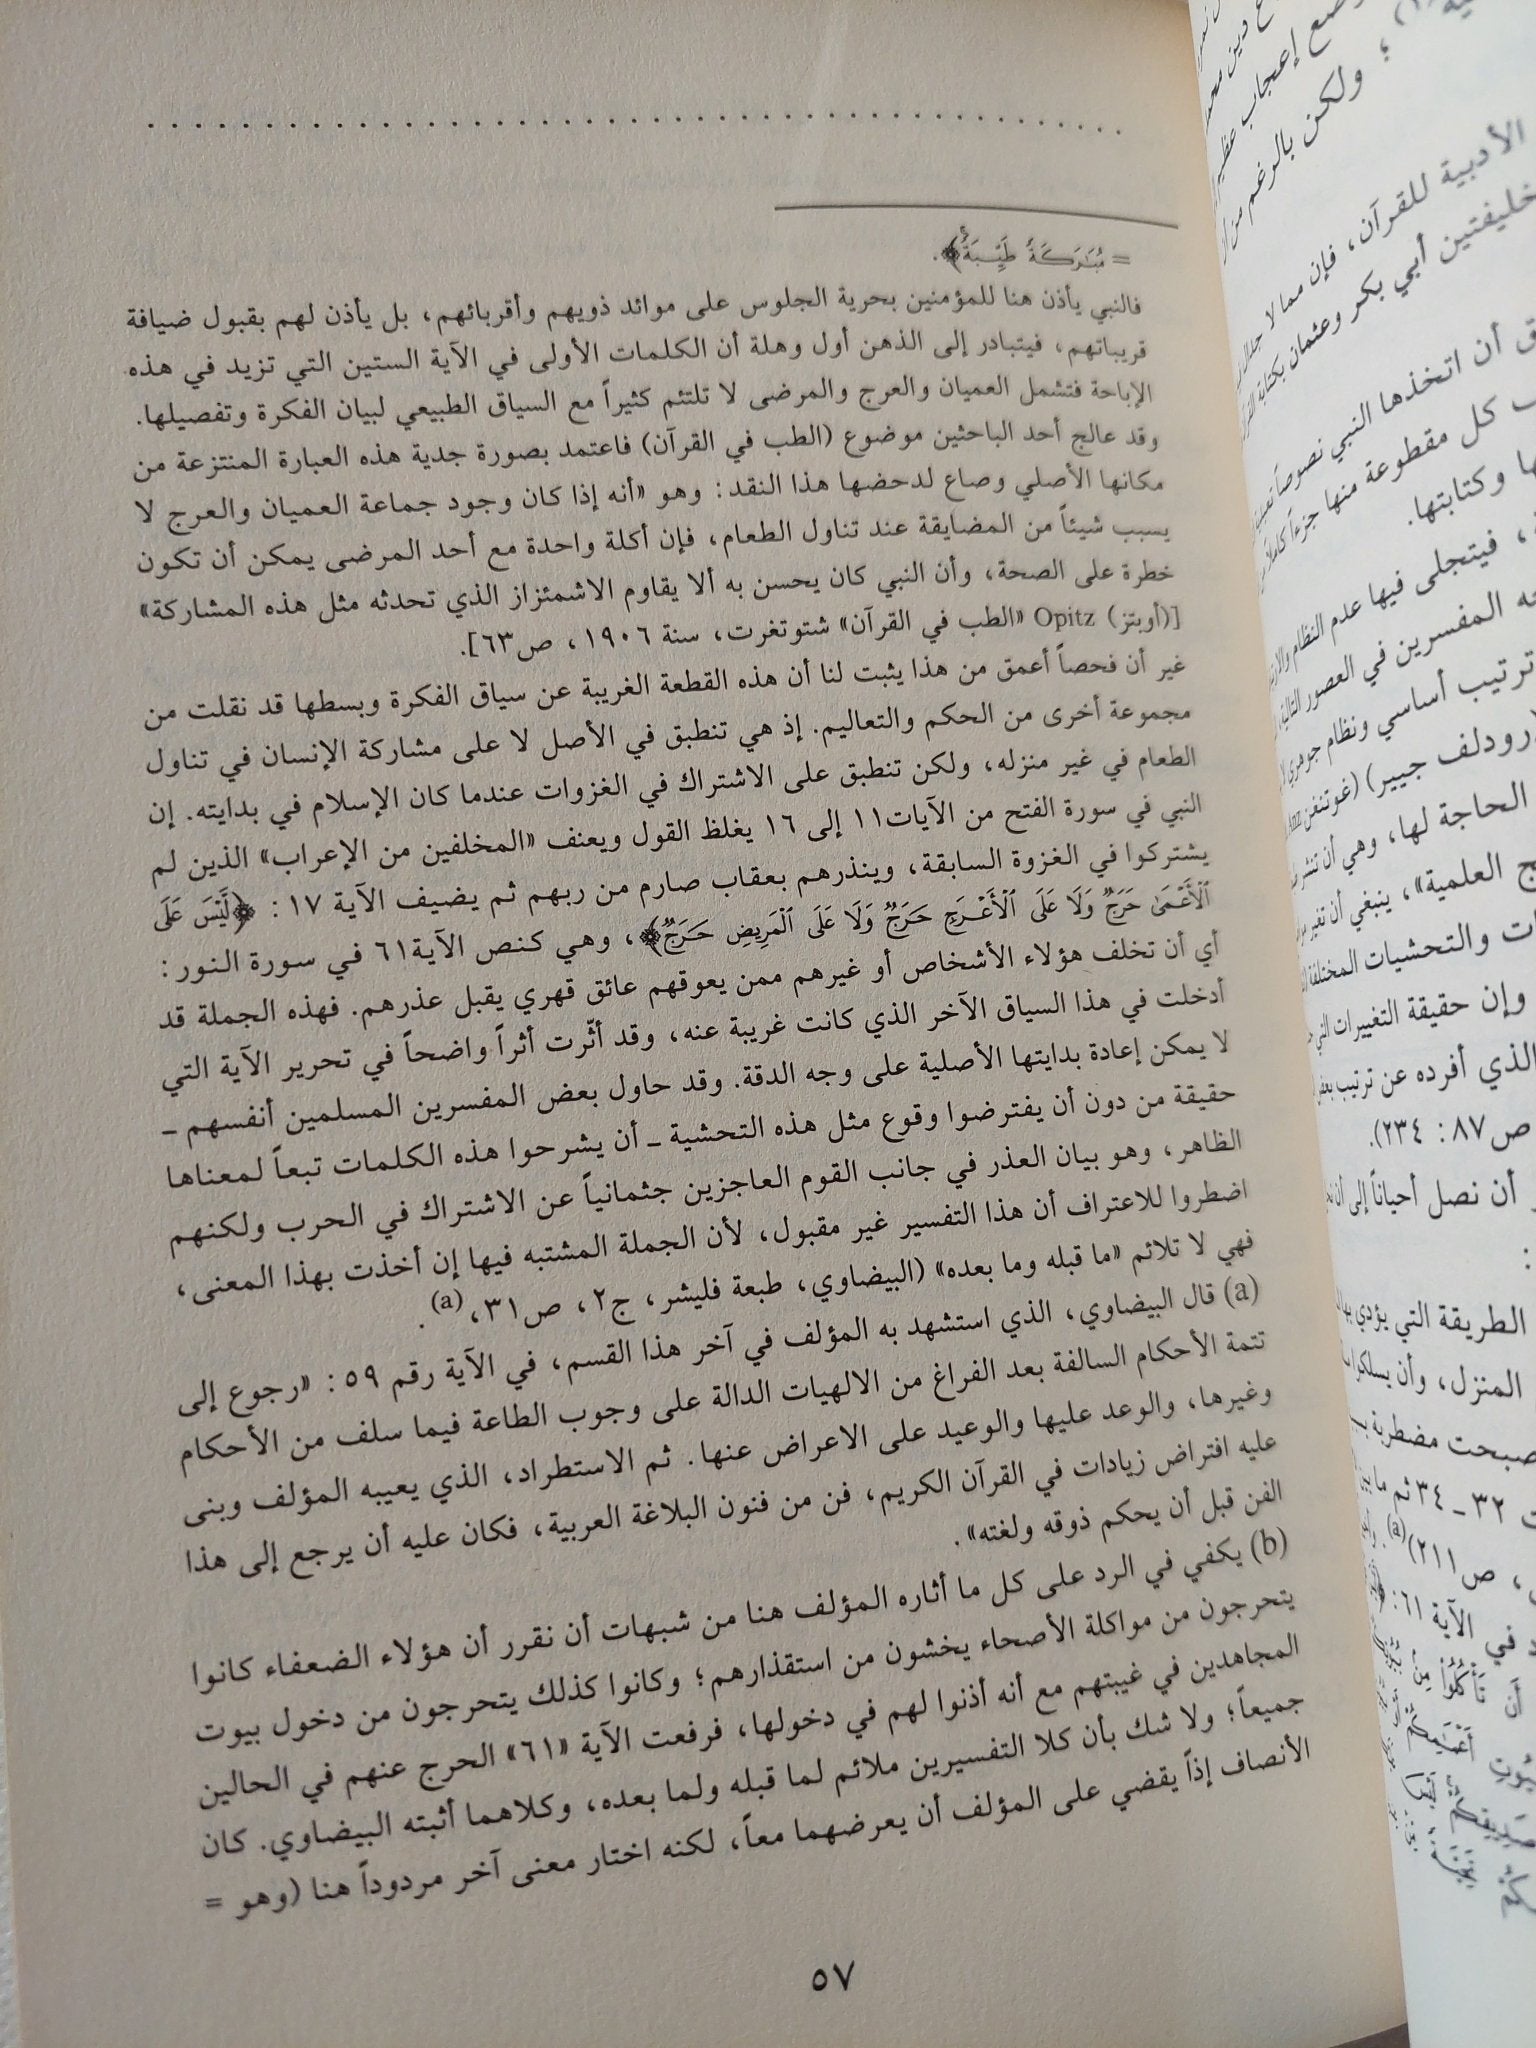 = مُبَٰرَكَةٗ طَيِّبَةٗۚ﴾.
فالنبي يأذن هنا للمؤمنين بحرية الجلوس على موائد ذويهم وأقربائهم، بل يأذن لهم بقبول ضيافة
قريباتهم، فيتبادر إلى الذهن أول وهلة أن الكلمات الأولى في الآية الستين التي تزيد في هذه
الإباحة فتشمل العميان والعرج والمرضى لا تلتئم كثيراً مع السياق الطبيعي لبيان الفكرة وتفصيلها.
وقد عالج أحد الباحثين موضوع (الطب في القرآن) فاعتمد بصورة جدية هذه العبارة المنتزعة من
مكانها الأصلي وصاع لدحضها هذا النقد: وهو «أنه إذا كان وجود جماعة العميان والعرج لا
يسبب شيئاً من المضايقة عند تناول الطعام، فإن أكلة واحدة مع أحد المرضى يمكن أن تكون
خطرة على الصحة، وأن النبي كان يحسن به ألا يقاوم الاشمئزاز الذي تحدثه مثل هذه المشاركة»
[(أوبتز) Opitz «الطب في القرآن» شتوتغرت، سنة ١٩٠٦، ص٦٣].
غير أن فحصاً أعمق من هذا يثبت لنا أن هذه القطعة الغريبة عن سياق الفكرة وبسطها قد نقلت من
مجموعة أخرى من الحكم والتعاليم. إذ هي تنطبق في الأصل لا على مشاركة الإنسان في تناول
الطعام في غير منزله، ولكن تنطبق على الاشتراك في الغزوات عندما كان الإسلام في بدايته. إن
النبي في سورة الفتح من الآيات١١ إلى ١٦ يغلظ القول ويعنف «المخلفين من الإعراب» الذين لم
يشتركوا في الغزوة السابقة، وينذرهم بعقاب صارم من ربهم ثم يضيف الآية ١٧: ﴿لَّيۡسَ عَلَى
ٱلۡأَعۡمَىٰ حَرَجٞ وَلَا عَلَى ٱلۡأَعۡرَجِ حَرَجٞ وَلَا عَلَى ٱلۡمَرِيضِ حَرَجٞ﴾، وهي كنص الآية٦١ في سورة النور:
أي أن تخلف هؤلاء الأشخاص أو غيرهم ممن يعوقهم عائق قهري يقبل عذرهم. فهذه الجملة قد
أدخلت في هذا السياق الآخر الذي كانت غريبة عنه، وقد أثّرت أثراً واضحاً في تحرير الآية التي
لا يمكن إعادة بدايتها الأصلية على وجه الدقة. وقد حاول بعض المفسرين المسلمين أنفسهم ـ
حقيقة من دون أن يفترضوا وقوع مثل هذه التحشية ـ أن يشرحوا هذه الكلمات تبعاً لمعناها
الظاهر، وهو بيان العذر في جانب القوم العاجزين جثمانياً عن الاشتراك في الحرب ولكنهم
اضطروا للاعتراف أن هذا التفسير غير مقبول، لأن الجملة المشتبه فيها إن أخذت بهذا المعنى،
فهي لا تلائم «ما قبله وما بعده» (البيضاوي، طبعة فليشر، ج٢، ص٣١، (a).
(a) قال البيضاوي، الذي استشهد به المؤلف في آخر هذا القسم، في الآية رقم ٥٩: «رجوع إلى
تتمة الأحكام السالفة بعد الفراغ من الالهيات الدالة على وجوب الطاعة فيما سلف من الأحكام
وغيرها، والوعد عليها والوعيد على الاعراض عنها. ثم الاستطراد، الذي يعيبه المؤلف وبنى
عليه افتراض زيادات في القرآن الكريم، فن من فنون البلاغة العربية، فكان عليه أن يرجع إلى هذا
الفن قبل أن يحكم ذوقه ولغته».
(b) يكفي في الرد على كل ما أثاره المؤلف هنا من شبهات أن نقرر أن هؤلاء الضعفاء كانوا
يتحرجون من مواكلة الأصحاء يخشون من استقذارهم؛ وكانوا كذلك يتحرجون من دخول بيوت
المجاهدين في غيبتهم مع أنه أذنوا لهم في دخولها، فرفعت الآية «٦١» الحرج عنهم في الحالين
جميعاً؛ ولا شك بأن كلا التفسيرين ملائم لما قبله ولما بعده، وكلاهما أثبته البيضاوي. كان
الأنصاف إذاً يقضي على المؤلف أن يعرضهما معاً، لكنه اختار معنى آخر مردوداً هنا (وهو =
٥٧
ولكن بالرغم من
الأدبية للقرآن، فإن مما لا
خليفتين أبي بكر وعثمان بكتابة
أن اتخذها النبي نصوصاً
كل مقطوعة منها جزءاً كاملاً
وكتابتها.
فيتجلى فيها عدم النظام
المفسرين في العصور التالية
ترتيب أساسي ونظام جوهري
رودلف جيير) (غوتنغن
الحاجة لها، وهي أن
العلمية»، ينبغي أن تغير
والتحشيات المختلفة
وإن حقيقة التغييرات
الذي أفرده عن ترتيب
ص٨٧: ٢٣٤).
أن نصل أحياناً إلى أن
الطريقة التي يؤدي بها
المنزل، وأن يسلكوا
مضطربة
٣٢ ـ ٣٤ ثم ما
ص٢١١)(a).
في الآية ٦١:
أَن تَأۡكُلُواْ مِنۢ